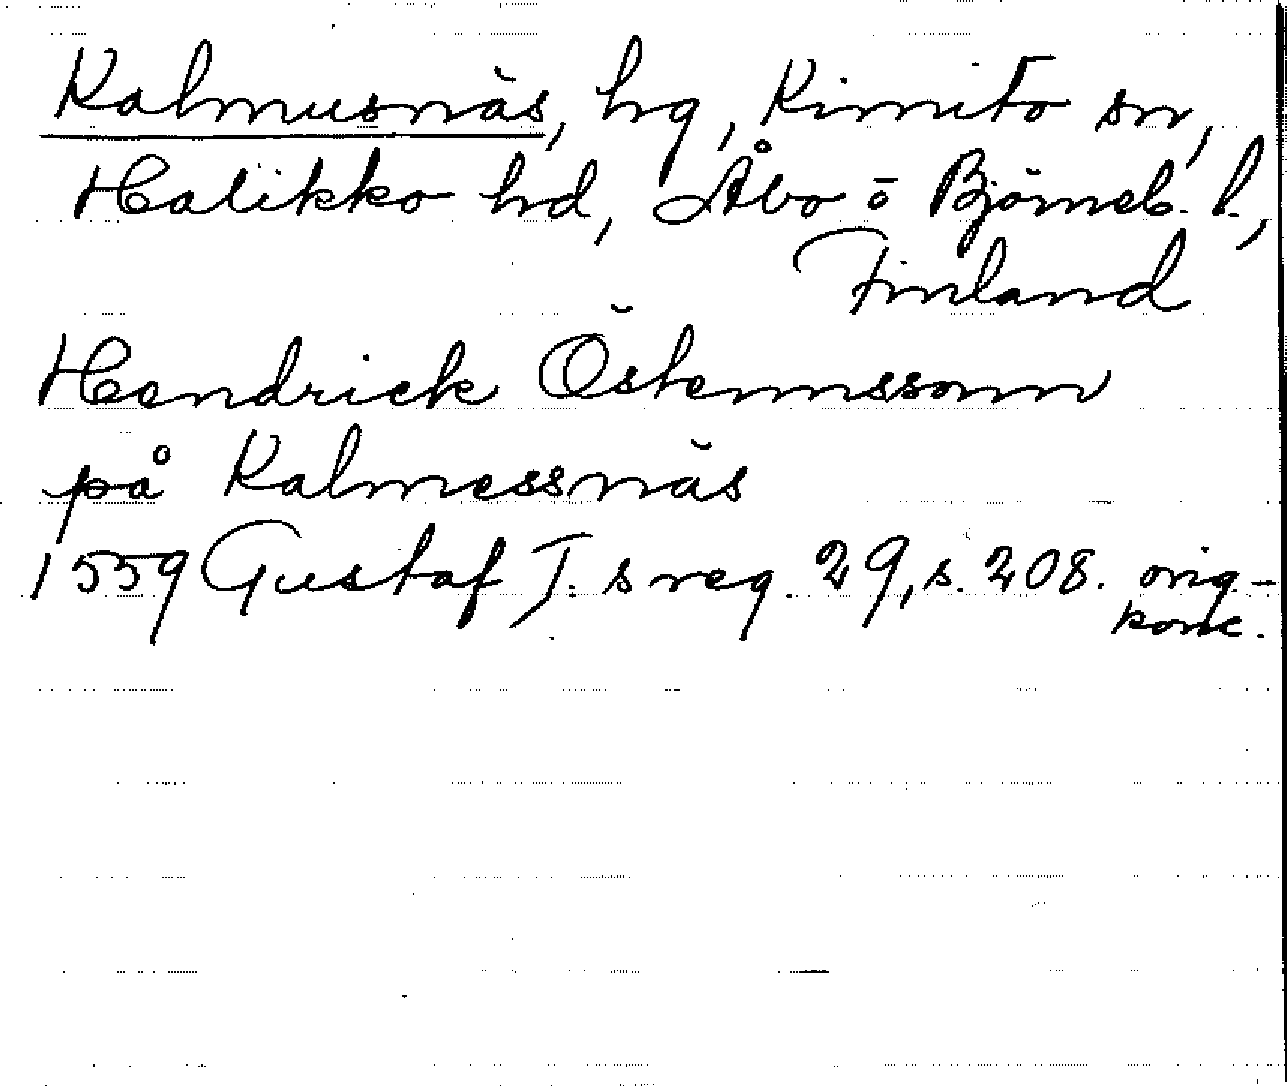 Kalmusnäs, hg, Kimito sn,
Halikko hd, Åbo o Björneb. l.,
Finland
Hendrick Östennssonn
på Kalmessnäs
1559 Gustaf I:s reg. 29, s. 208. orig-
konc.